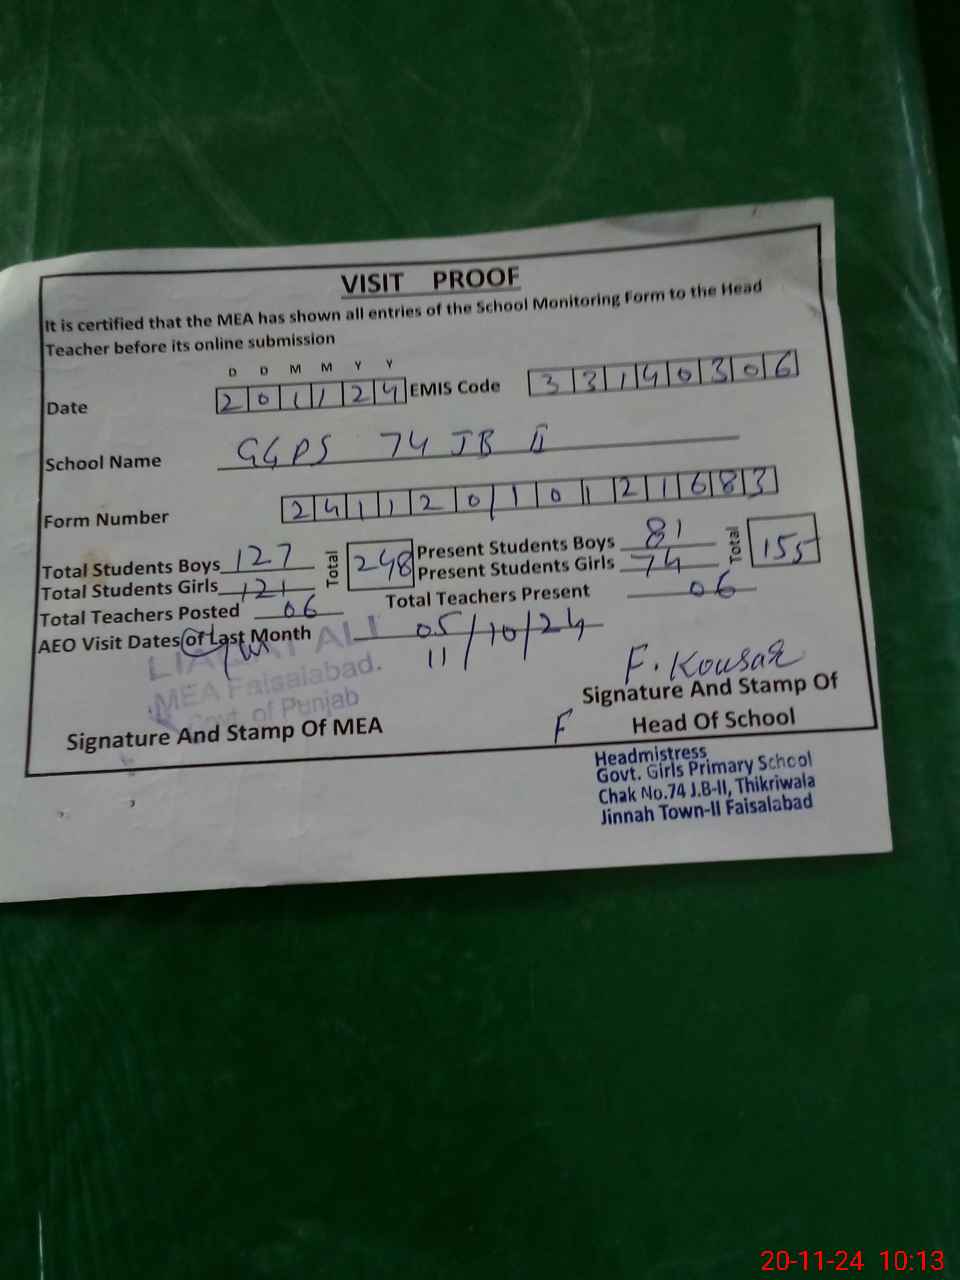 VISIT PROOF
It is certified that the MEA has shown all entries of the School Monitoring Form to the Head
Teacher before its online submission
D D M M Y Y
Date 201124 EMIS Code 33140306
School Name GGPS 74 JB II
Form Number 24112010121683
Total Students Boys 127 Total 248 Present Students Boys 81 Total 155
Total Students Girls 121 Present Students Girls 74
Total Teachers Posted 06 Total Teachers Present 06
AEO Visit Dates of Last Month 05/10/24
11
LIAQAT ALI
MEA Faisalabad.
Govt. of Punjab
Signature And Stamp Of MEA
F. Kousar
Signature And Stamp Of
F Head Of School
Headmistress
Govt. Girls Primary School
Chak No.74 J.B-II, Thikriwala
Jinnah Town-II Faisalabad
20-11-24 10:13